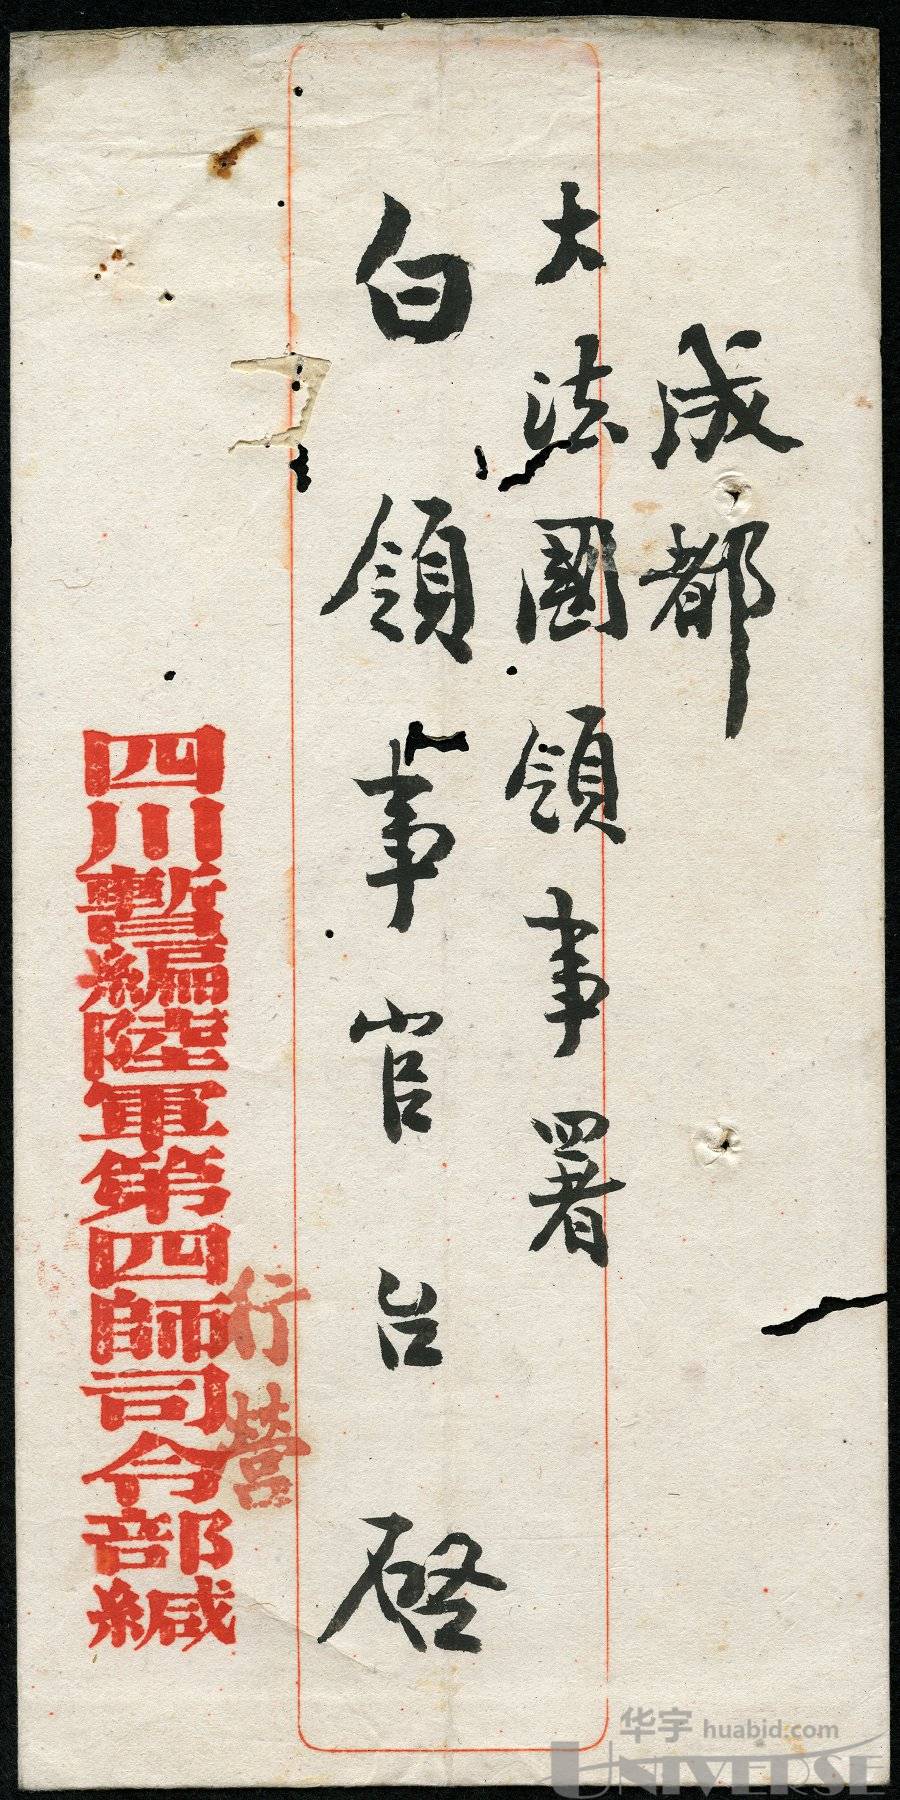 成都
大法國領事署
白領事官台啓
行營
四川暫編陸軍第四師司令部緘
华宇 huabid.com
UNIVERSE